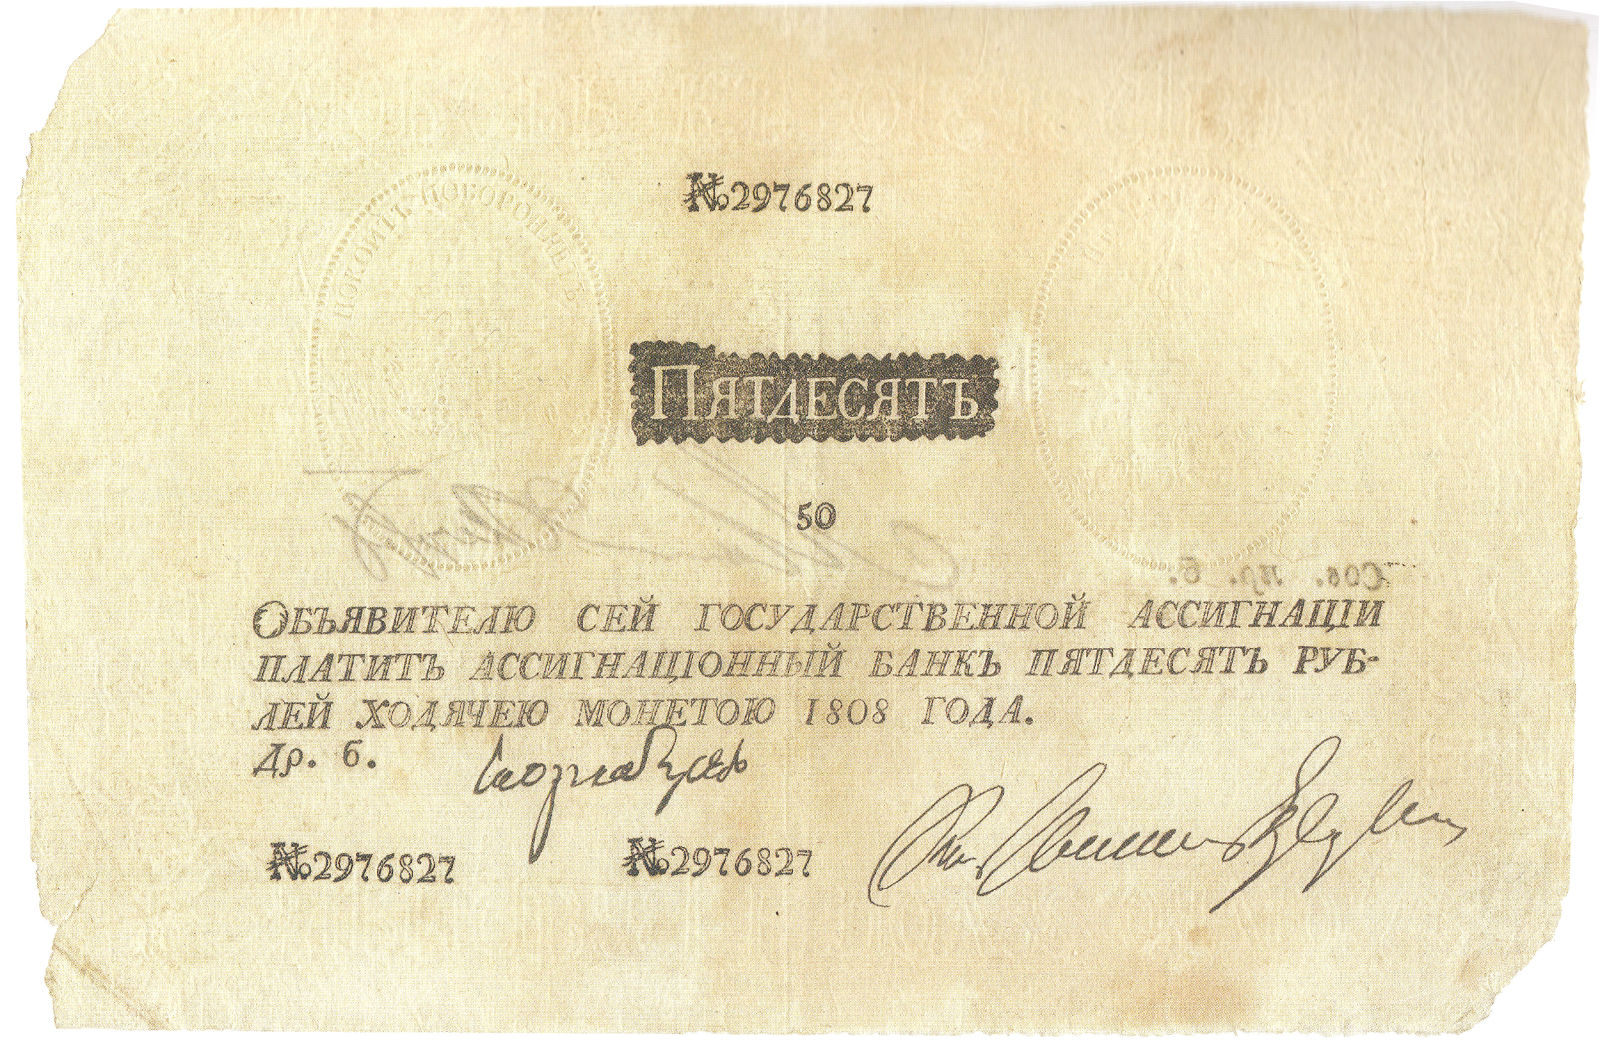 №2976827
ПОКОИТЪ И ОБОРОНЯЕТЪ
ПЯТДЕСЯТЪ
50
Сов. пр. б.
ОБЪЯВИТЕЛЮ СЕЙ ГОСУДАРСТВЕННОЙ АССИГНАЦІИ
ПЛАТИТЪ АССИГНАЦІОННЫЙ БАНКЪ ПЯТДЕСЯТЪ РУБ-
ЛЕЙ ХОДЯЧЕЮ МОНЕТОЮ 1808 ГОДА.
ДР. б.
№2976827 №2976827